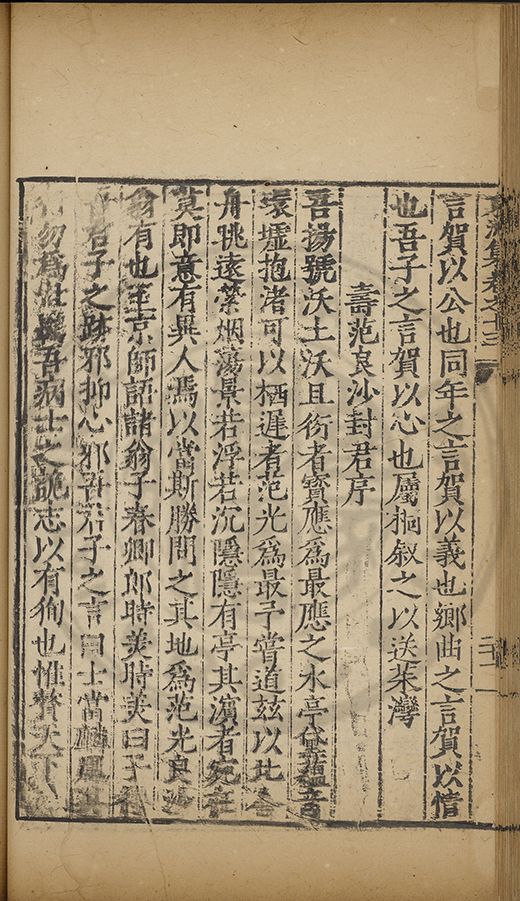 言賀以公也同年之言賀以義也鄉曲之言賀以情
也吾子之言賀以心也屬桐叙之以送茱灣
壽范良沙封君序
吾揚號沃土沃且衍者寶應為最應之水亭
墟抱渚可以栖遲者范光為最予嘗道玆以北
舟眺遠縈烟蕩景若浮若沉隱隱有亭其濵者宛在
莫即意有異人焉以當斯勝問之其地為范光良沙
翁有也至京師語諸翁子春卿郎時美時美曰子
君子之跡邪抑心邪吾君子之言曰士當
勿為吾病士之詭志以有徇也惟天下